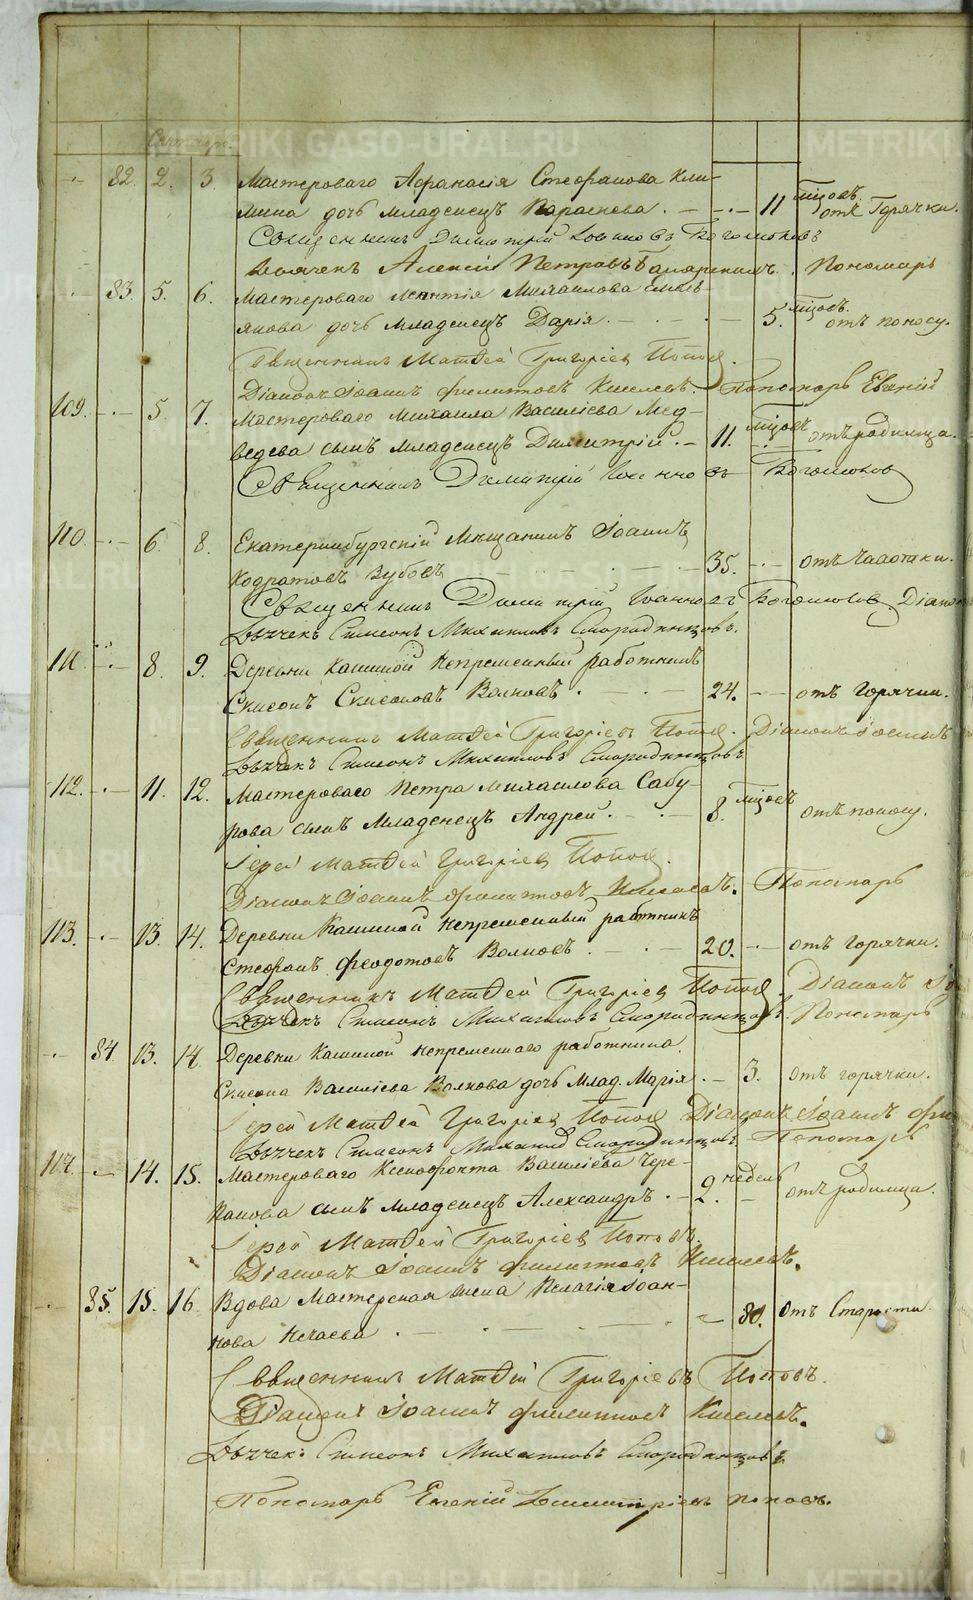 Сентябрь
82. 2. 3. Мастероваго Афанасія Стефанова Кли-
мина дочь младенецъ Параскева. 11 мѣсяцовъ. отъ Горячки.
Священникъ Димитрій Іоанновъ Богомоловъ
Дьячекъ Алексій Петровъ Пономарь
83. 5. 6. Мастероваго Леонтія Михаилова Емель-
янова дочь младенецъ Дарія. 5. мѣсяцовъ. отъ поносу.
Священникъ Матѳей Григоріевъ Поповъ.
Діаконъ Іоаннъ Филиповъ Киселевъ. Пономарь Евгеній
109. 5. 7. Мастероваго Михаила Василіева Мед-
ведева сынъ младенецъ Димитрій. 11. мѣсяцовъ отъ родимца.
Священникъ Димитрій Іоанновъ Богомоловъ
110. 6. 8. Екатеринбургскій Мещанинъ Іоаннъ
Кодратовъ Зубовъ 35. отъ Чахотки.
Священникъ Димитрій Іоанновъ Богомоловъ. Діаконъ
Дьячекъ Симеонъ Михаиловъ Смородинцовъ.
111. 8. 9. Деревни Кашиной Непременный работникъ
Симеонъ Симеоновъ Волковъ. 24. отъ горячки.
Священникъ Матѳей Григоріевъ Поповъ. Діаконъ Іоаннъ
Дьячекъ Симеонъ Михаиловъ Смородинцовъ
112. 11. 12. Мастероваго Петра Михаилова Сабу-
рова сынъ младенецъ Андрей. 8. мѣсяцовъ отъ поносу.
Іерей Матѳей Григоріевъ Поповъ.
Діаконъ Іоаннъ Филиповъ Киселевъ. Пономарь
113. 13. 14. Деревни Кашиной непременный работникъ
Стефанъ Феодотовъ Волковъ. 20. отъ горячки.
Священникъ Матѳей Григоріевъ Поповъ. Діаконъ
Дьячекъ Симеонъ Михаиловъ Смородинцовъ. Пономарь
84. 13. 14. Деревни Кашиной непременнаго работника
Симеона Василіева Волкова дочь млад. Марія. 3. отъ горячки.
Іерей Матѳей Григоріевъ Поповъ Діаконъ Іоаннъ
Дьячекъ Симеонъ Михаилов Смородинцовъ Пономарь
114. 14. 15. Мастероваго Ксенофонта Василіева Чере-
панова сынъ младенецъ Александръ. 2. недель отъ родимца.
Іерей Матѳей Григоріевъ Поповъ.
Діаконъ Іоаннъ Филиповъ Киселевъ.
85. 15. 16. Вдова Мастерская жена Пелагія Іоан-
нова Нечаева. 80. отъ Старости.
Священникъ Матѳей Григоріевъ Поповъ.
Діаконъ Іоаннъ Филиповъ Киселевъ.
Дьячекъ Симеонъ Михаиловъ Смородинцовъ.
Пономарь Евгеній Димитріевъ Поповъ.
METRIKI.GASO-URAL.RU